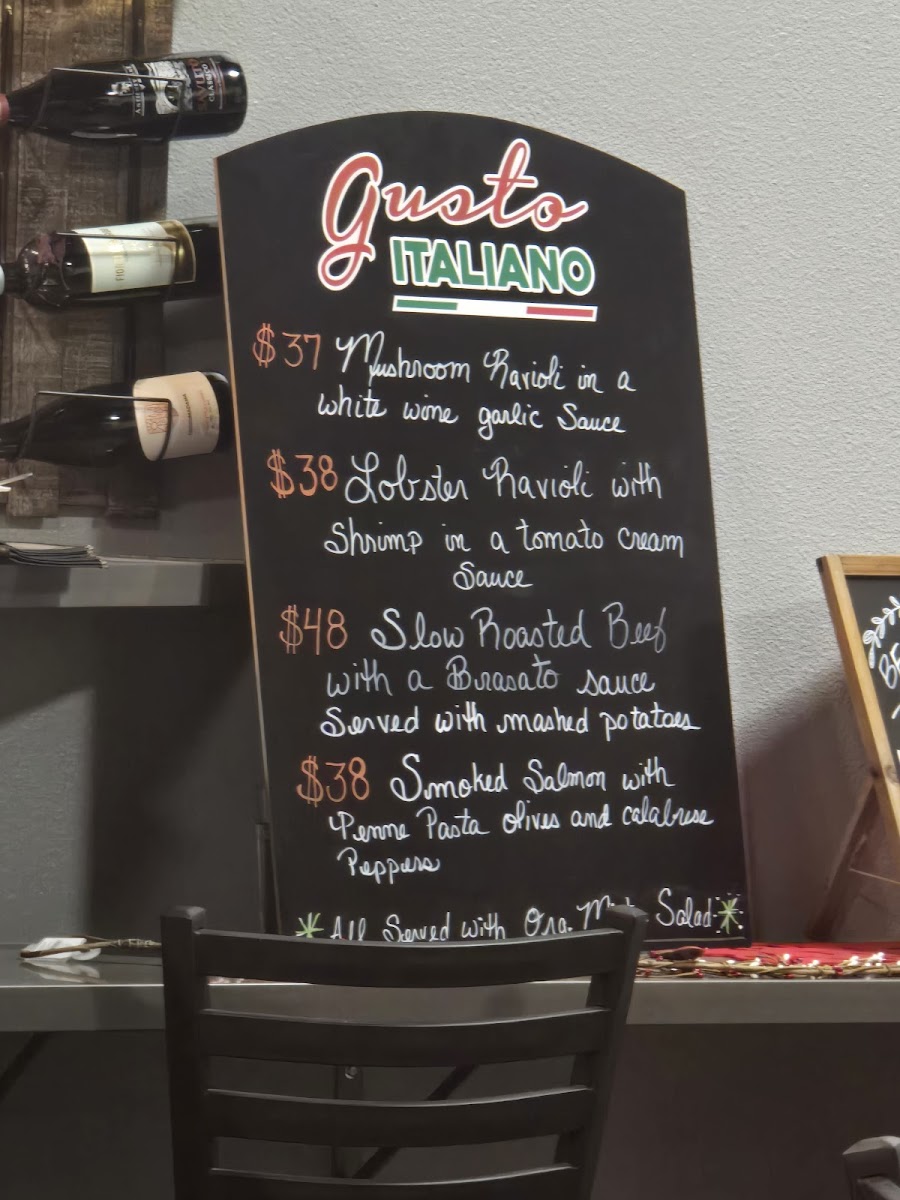 Gusto
ITALIANO
$37 Mushroom Ravioli in a
white wine garlic Sauce
$38 Lobster Ravioli with
Shrimp in a tomato cream
Sauce
$48 Slow Roasted Beef
with a Brasato sauce
Served with mashed potatoes
$38 Smoked Salmon with
Penne Pasta olives and calabrese
Peppers
All Served with Org. Salad